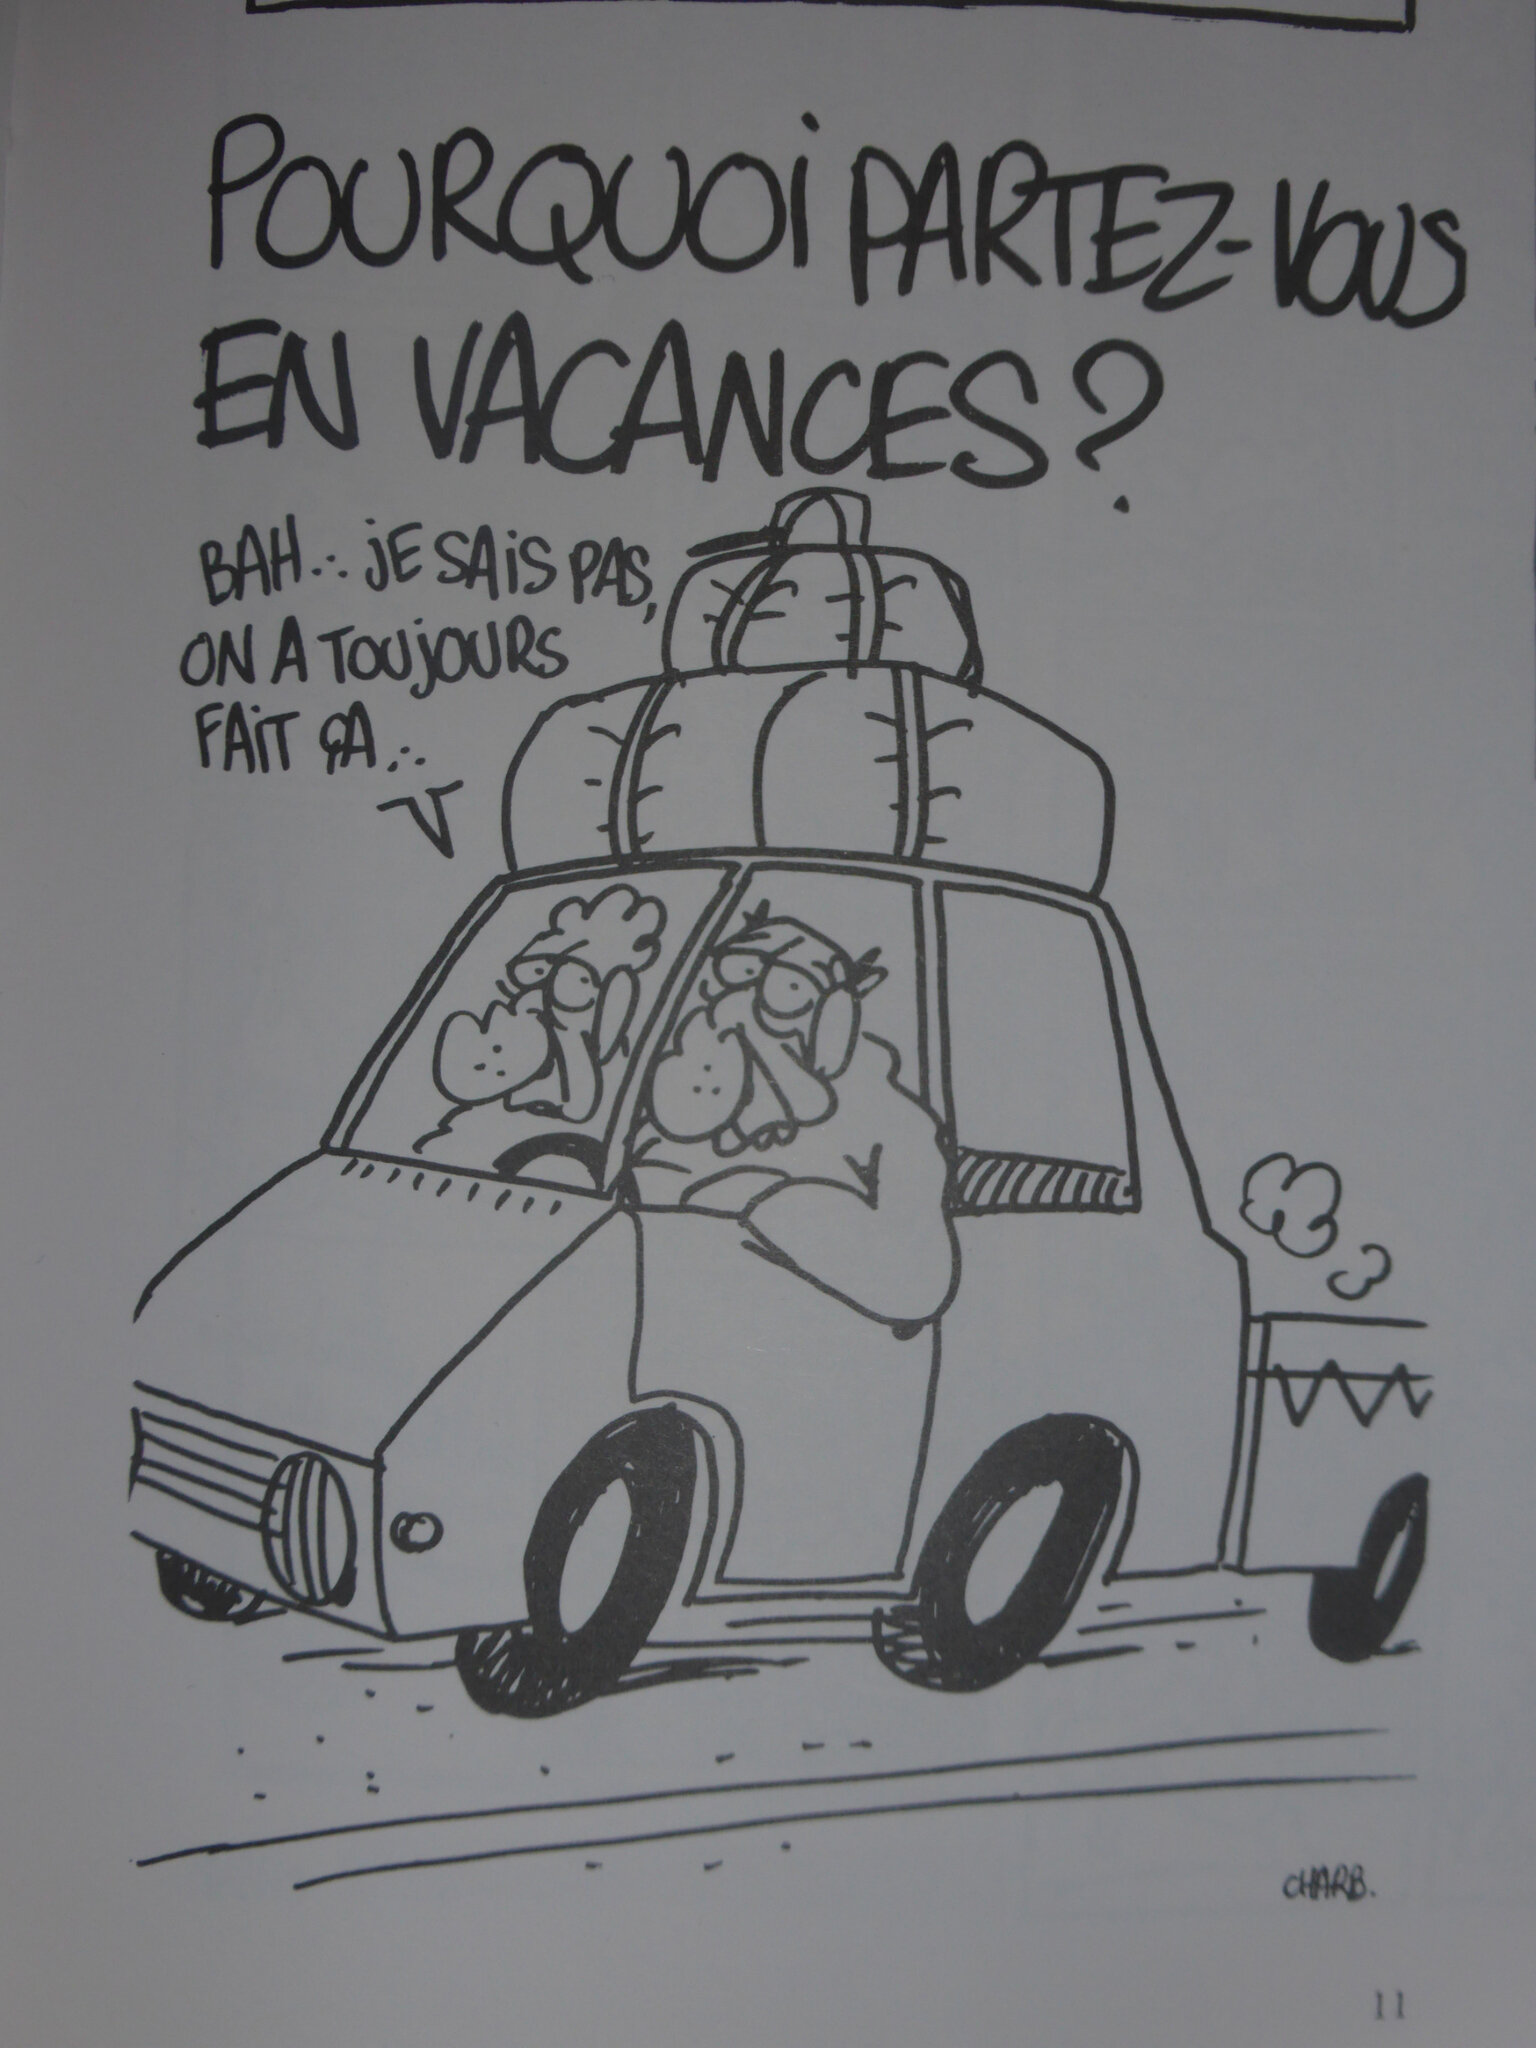 POURQUOI PARTEZ-VOUS
EN VACANCES?
BAH... JE SAIS PAS,
ON A TOUJOURS
FAIT ÇA...
CHARB.
11